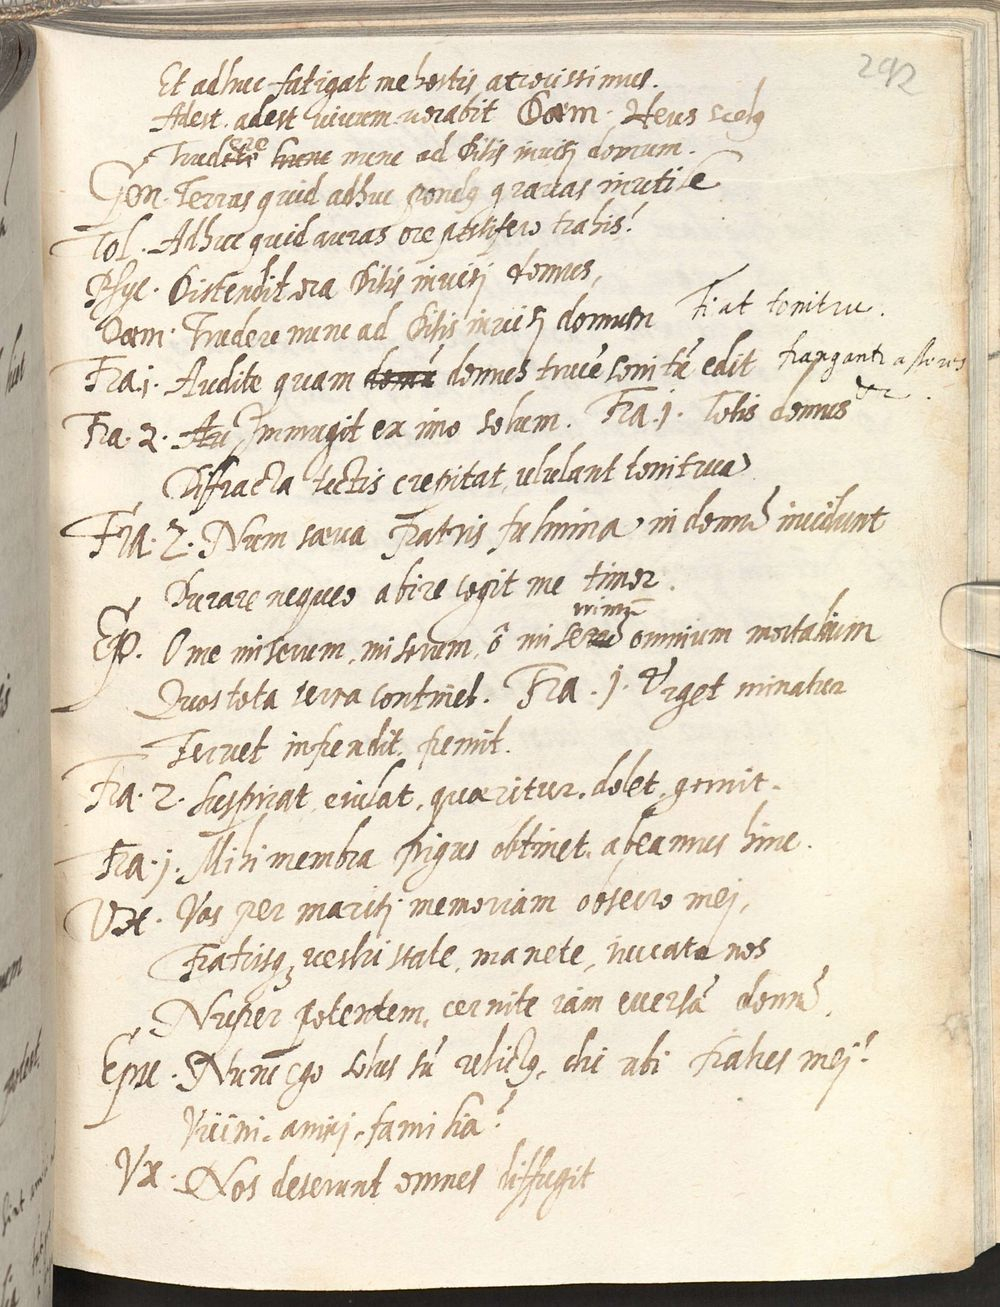 292
Et adhuc fatigat me hostis atrocissimus.
Adest adest vivum vorabit Dæm. Heus scelq
Tradere nunc ad Ditis invisi domum.
Con. Terras quid adhuc pondq gravas inutile
Tol. Adhuc quid auras ore pestifero trahis?
Psyc. Distendit ora Ditis invisi domus,
Dæm. Tradere nunc ad Ditis invisi domum Fiat tonitru.
Fra. j. Audite quam domus trucē sonitū edit frangantr asseres
&c.
Fra. 2. Immugit ex imo solum. Fra. j. Totis domus
Diffracta tectis crepitat, ululant tonitrua
Fra. 2. Num sæva Fratris fulmina in domū incidunt
Durare nequeo abire cogit me timor.
Ep. O me miserum, miserum, ô miserrimū omnium mortalium
Quos tota terra continet. Fra. j. Urget minatur
Terret infendit fremit.
Fra. 2. Suspirat eiulat, quæritur, dolet, gemit.
Fra. j. Mihi membra frigus obtinet, abeamus hinc.
Vx. Vos per mariti memoriam obsecro mej,
Fratrisq; vestri state, manete, iuvate nos
Nuper potentem, cernite iam eversā domū.
Epu. Nunc ego solus sū relictq, ubi fratres mej?
Vicini, amici, familia?
Vx. Nos deserunt omnes diffugit